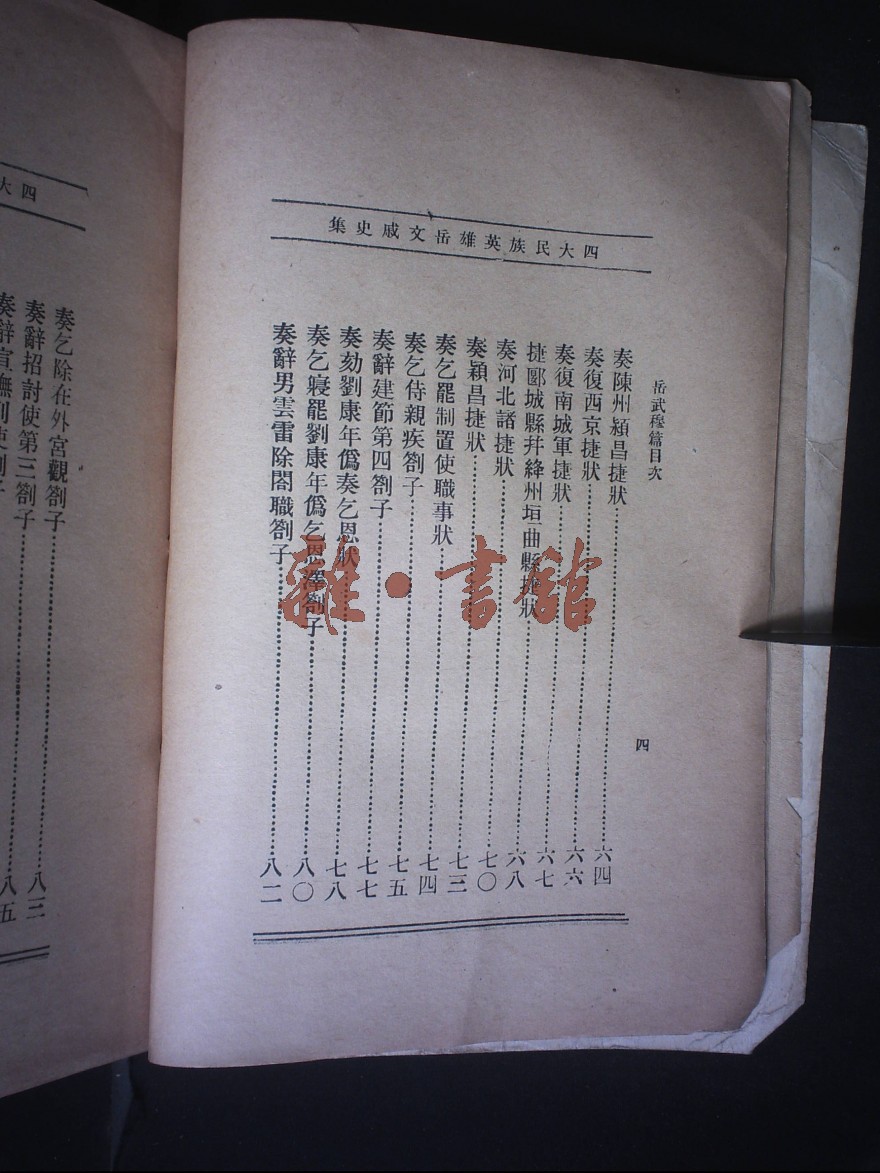 四大民族英雄岳文戚史集
岳武穆篇目次
四
奏陳州潁昌捷狀……六四
奏復西京捷狀……六六
奏復南城軍捷狀……六七
捷郾城縣幷絳州垣曲縣捷狀……六八
奏河北諸捷狀……七〇
奏潁昌捷狀……七三
奏乞罷制置使職事狀……七四
奏乞侍親疾劄子……七五
奏辭建節第四劄子……七七
奏劾劉康年僞奏乞恩狀……七八
奏乞寢罷劉康年僞乞恩澤劄子……八〇
奏辭男雲雷除閤職劄子……八二
四大
奏乞除在外宮觀劄子……八三
奏辭招討使第三劄子……八五
奏辭宣撫副使劄子
雜·書館